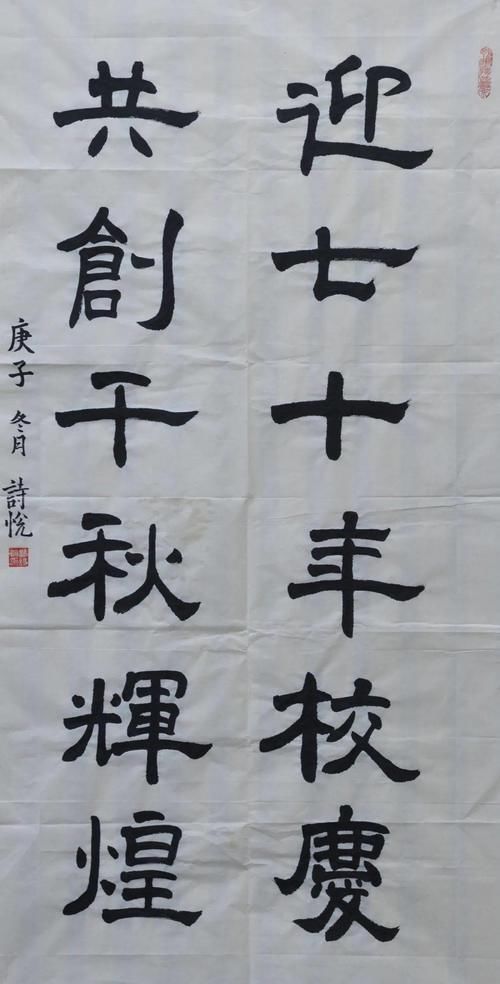 迎七十年校慶
共創千秋輝煌
庚子 冬月 詩悅